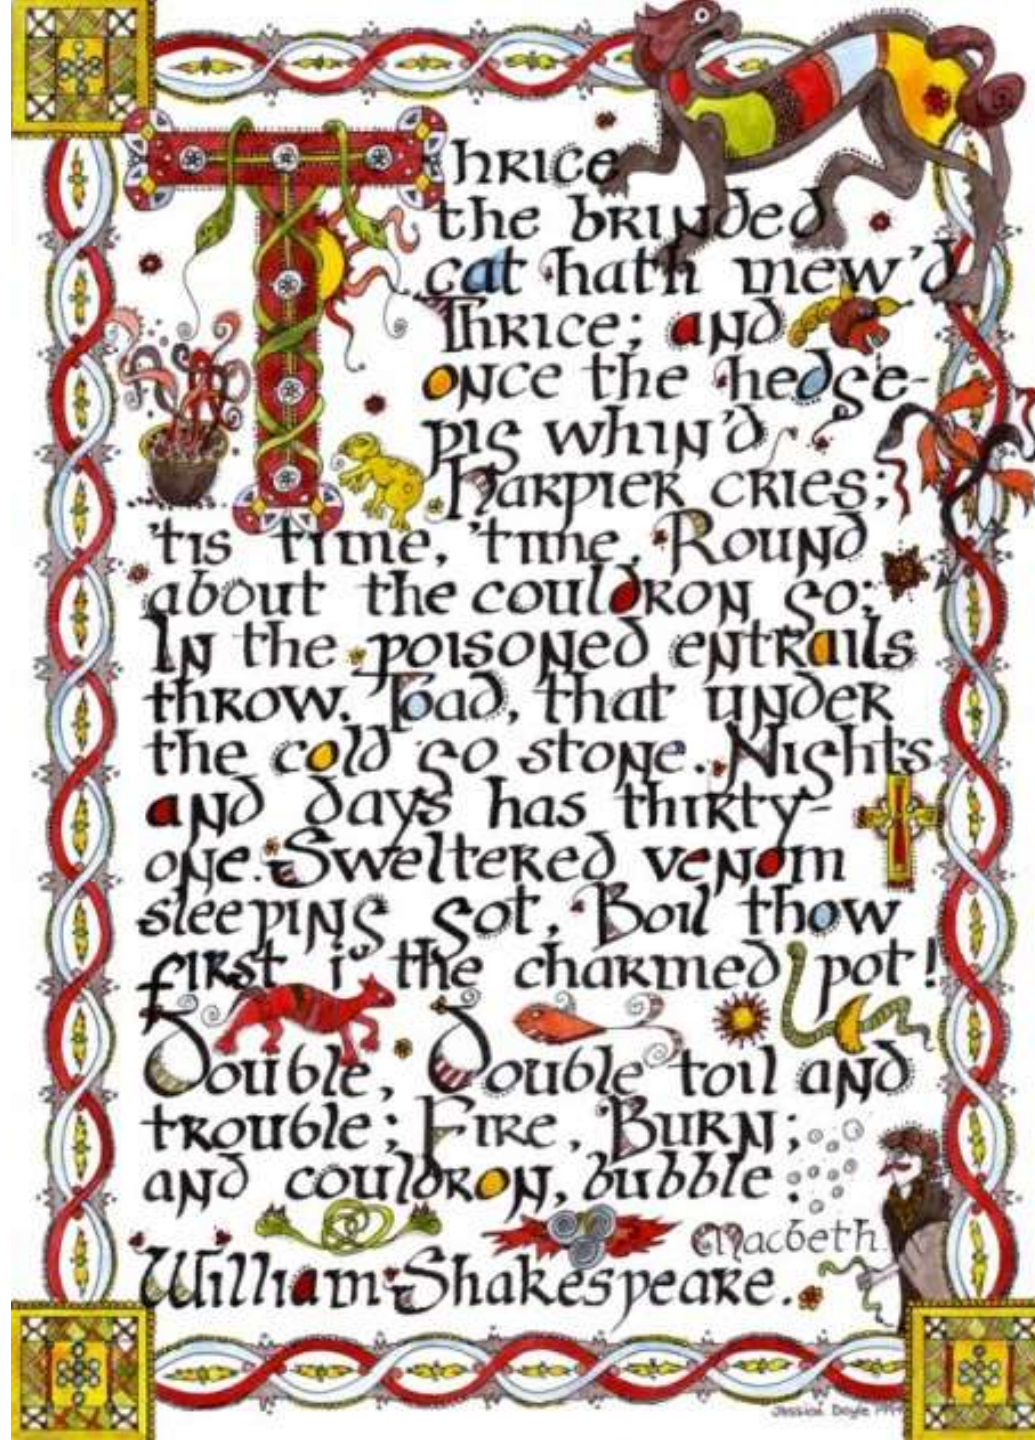 Thrice
the brinded
cat hath mew'd
Thrice; and
once the hedge-
pig whin'd
Harpier cries;
'tis time, 'time. Round
about the couldron go;
In the poisoned entrails
throw. Toad, that under
the cold go stone. Nights
and days has thirty-
one. Sweltered venom
sleeping got, Boil thow
first i' the charmed pot!
Double, Double toil and
trouble; Fire, Burn;
and couldron, bubble.
Macbeth.
William Shakespeare.
Jessica Doyle